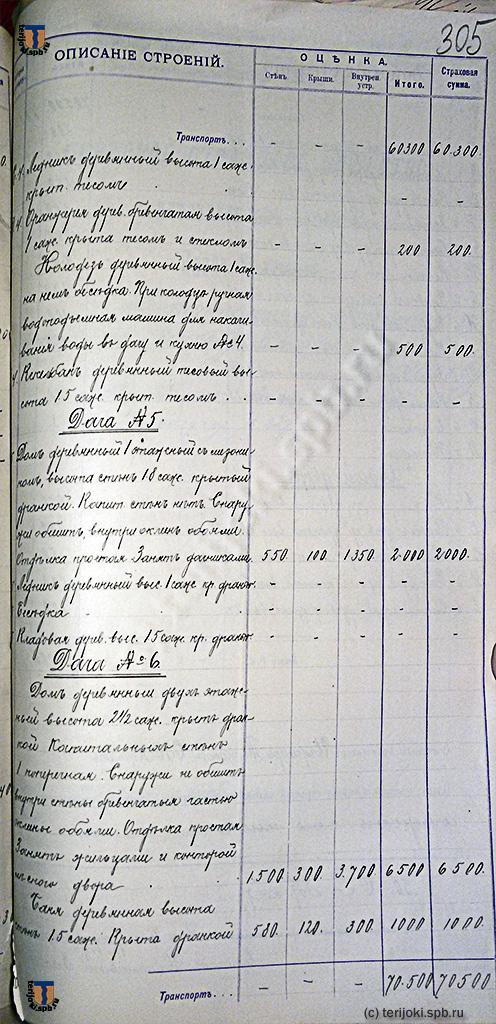 terijoki.spb.ru
305
ОПИСАНІЕ СТРОЕНІЙ.
ОЦѢНКА.
Стѣнъ. Крыши. Внутрен. устр. Итого. Страховая сумма.
Транспортъ... - - - 60300 60.300.
Ледникъ деревянный высота 1 саж.
крыт. тесомъ - - - - -
Оранжерея дерев. бревенчатая высота
1 саж. крыта тесомъ и стекломъ - - - 200 200.
Колодезь деревянный высота 1 саж.
на немъ бесѣдка. При колодцѣ ручная
водоподъемная машина для накачи-
ванія воды въ дачу и кухню № 4. - - - 500 500.
деревянный тесовый вы-
сота 1.5 саж. крыт. тесомъ - - - - -
Дача № 5.
Домъ деревянный 1 этажный съ мезони-
номъ, высота стѣнъ 1.8 саж. крытый
дранкой. Капит. стѣнъ нѣтъ. Снару-
жи обшитъ, внутри оклеенъ обоями.
Отдѣлка простая. Занятъ дачниками. 550. 100. 1350. 2.000 2000.
Ледникъ деревянный выс. 1 саж. кр. дранк. - - - - -
Бесѣдка - - - - -
Кладовая дерев. выс. 1.5 саж. кр. дранк. - - - - -
Дача № 6.
Домъ деревянный двухъ этаж-
ный высота 2 1/2 саж. крытъ дран-
кой Капитальныхъ стѣнъ
1 поперечная. Снаружи не обшитъ
внутри стѣны бревенчатыя частью
оклеены обоями. Отдѣлка простая
Занятъ жильцами и конторой
лѣсного двора 1500. 300. 3.700 6500 6500.
Баня деревянная высота
стѣнъ 1.5 саж. Крыта дранкой 580. 120. 300. 1000 1000.
Транспортъ... - - - 70.500 70500
terijoki.spb.ru
(c) terijoki.spb.ru